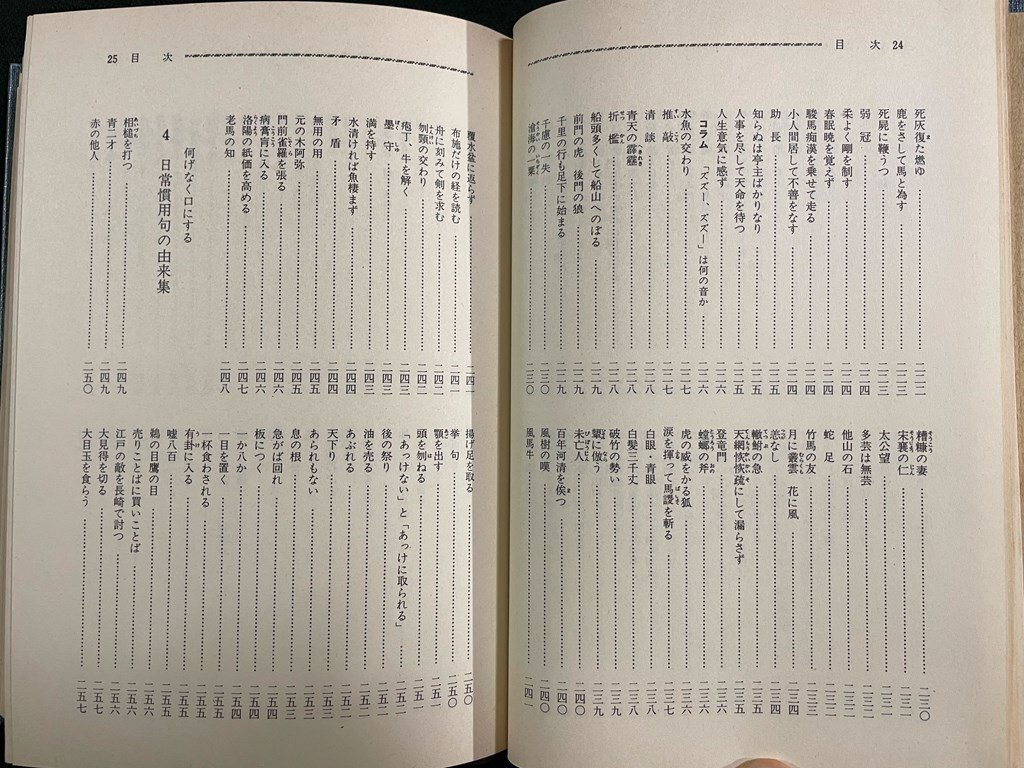 目次 24
死灰復た燃ゆ 二二二
鹿をさして馬と為す 二二三
死屍に鞭うつ 二二三
弱冠 二二四
柔よく剛を制す 二二四
春眠暁を覚えず
駿馬痴漢を乗せて走る 二二四
小人間居して不善をなす 二二四
助長 二二五
知らぬは亭主ばかりなり 二二五
人事を尽して天命を待つ 二二五
人生意気に感ず 二二六
コラム 「ズズー、ズズー」は何の音か 二二六
水魚の交わり 二二七
推敲 二二七
清談 二二八
青天の霹靂 二二八
折檻 二二八
船頭多くして船山へのぼる 二二九
前門の虎 後門の狼 二二九
千里の行も足下に始まる 二二九
千慮の一失 二三〇
滄海の一粟 二三〇
糟糠の妻 二三〇
宋襄の仁 二三一
太公望 二三一
多芸は無芸 二三二
他山の石 二三二
蛇足
竹馬の友
月に叢雲 花に風 二三四
恙なし 二三四
轍鮒の急 二三五
天網恢恢疏にして漏らさず 二三五
登竜門
螳螂の斧 二三六
虎の威をかる狐
涙を揮って馬謖を斬る 二三七
白眼・青眼 二三八
白髪三千丈 二三八
破竹の勢い 二三九
顰に倣う 二三九
未亡人 二四〇
百年河清を俟つ 二四〇
風樹の嘆 二四〇
風馬牛 二四一
25 目次
覆水盆に返らず 二四一
布施だけの経を読む 二四一
舟に刻みて剣を求む 二四二
刎頸の交わり 二四二
庖丁、牛を解く 二四三
墨守 二四三
満を持す 二四三
水清ければ魚棲まず 二四四
矛盾 二四四
無用の用 二四五
元の木阿弥 二四五
門前雀羅を張る 二四六
病膏肓に入る 二四六
洛陽の紙価を高める 二四七
老馬の知 二四八
何げなく口にする
4 日常慣用句の由来集
相槌を打つ 二四九
青二才 二四九
赤の他人 二五〇
揚げ足を取る 二五〇
挙句 二五〇
顎を出す 二五一
頭を刎ねる 二五一
「あっけない」と「あっけに取られる」 二五一
後の祭り 二五二
油を売る 二五二
あぶれる 二五二
天下り
あられもない
息の根 二五三
急がば回れ
板につく
一か八か 二五四
一目を置く
一杯食わされる
有卦に入る 二五五
嘘八百 二五五
鵜の目鷹の目
売りことばに買いことば
江戸の敵を長崎で討つ 二五六
大見得を切る 二五七
大目玉を食らう 二五七